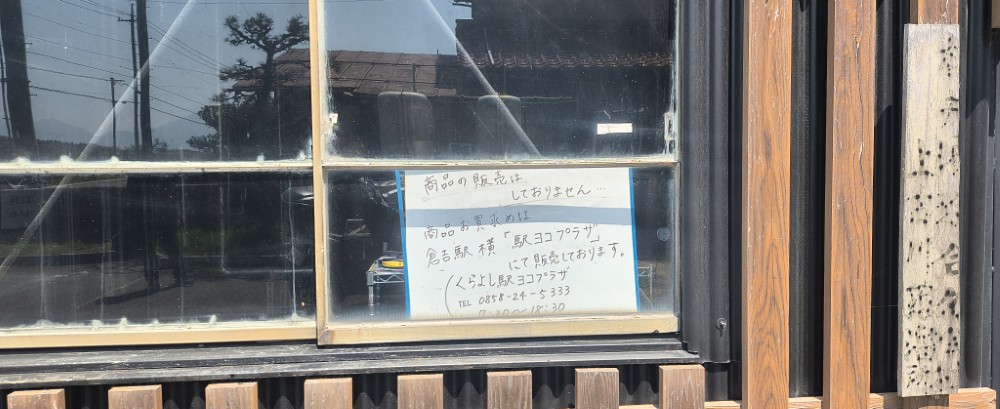 商品の販売は
しておりません…
商品お買求めは
倉吉駅横「駅ヨコプラザ」
にて販売しております。
(くらよし駅ヨコプラザ
TEL 0858-24-5333
7:30〜18:30